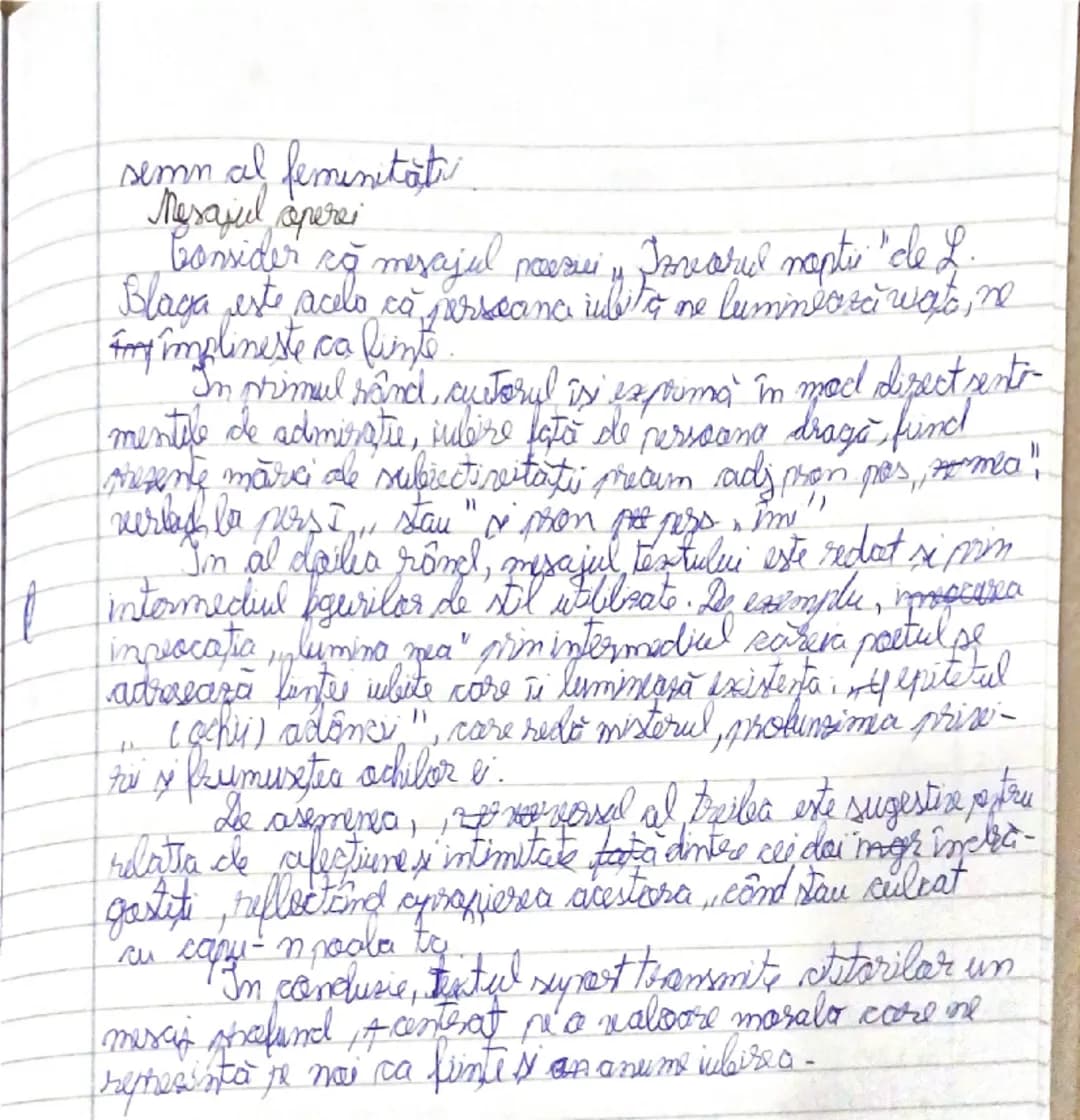 semn al feminității
Mesajul operei
Consider că mesajul poeziei „Izvorul nopții" de L.
Blaga este acela că persoana iubită ne luminează viața, ne
împlinește ca ființe.
În primul rând, autorul își exprimă în mod direct senti-
mentele de admirație, iubire față de persoana dragă, fiind
prezente mărci ale subiectivității precum adj pron pos „mea",
verbul la pers I „stau" și pron pers „îmi"
În al doilea rând, mesajul textului este redat și prin
intermediul figurilor de stil utilizate. De exemplu, invocarea
invocația „lumina mea" prin intermediul căreia poetul se
adresează ființei iubite care îi luminează existența; epitetul
„(ochii) adânci", care redă misterul, profunzimea privi-
rii și frumusețea ochilor ei.
De asemenea, versul al treilea este sugestiv pentru
relația de afecțiune și intimitate față dintre cei doi îndră-
gostiți, reflectând apropierea acestora „când stau culcat
cu capu-n poala ta
În concluzie, textul suport transmite cititorilor un
mesaj profund, centrat pe o valoare morala care ne
reprezintă pe noi ca ființe și anume iubirea.